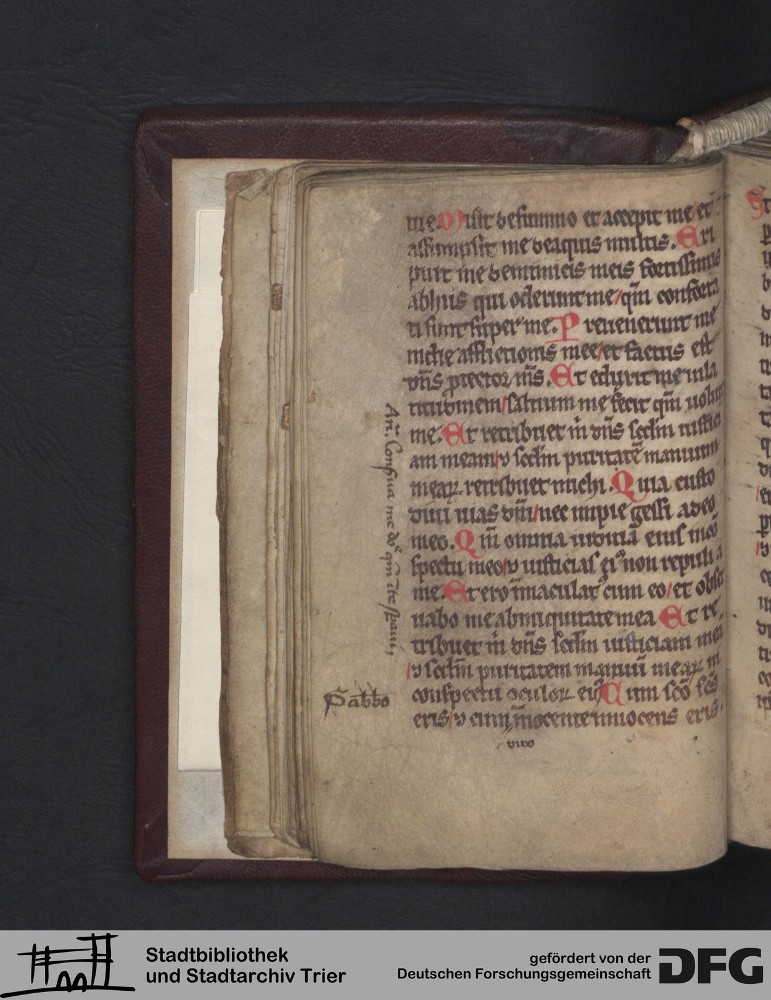 me. Misit de summo et accepit me / et
assumpsit me de aquis multis. Eri
puit me de inimicis meis fortissimis
ab hiis qui oderunt me / qm̄ conforta
ti sunt super me. Prevenerunt me
in die afflictionis mee / et factus est
dn̄s protector ms̄. Et eduxit me in la
titudinem / salvum me fecit qm̄ volu
me. Et retribuet m̄ dn̄s scd̄m iusticī
am meam / ⁊ scd̄m puritatē manuum
mearꝝ retribuet michi. Quia custo
divi vias dn̄i / nec impie gessi a deo
meo. Qm̄ omnia iudicia eius in cō
spectu meo / ⁊ iusticias eiꝰ non repuli a
me. Et ero īmaculatꝰ cum eo / et obser
vabo me ab iniquitate mea Et re
tribuet m̄ dn̄s scd̄m iusticiam mea
/ ⁊ scd̄m puritatem manuū mearꝝ in
conspectu oculorꝝ eiꝰ Cum scō scs̄
eris / ⁊ cum īnocente innocens eris.
viro
An̄. Conserva me dn̄e qm̄ ī te spavi,
Sabbō
Stadtbibliothek
und Stadtarchiv Trier
gefördert von der
Deutschen Forschungsgemeinschaft
DFG